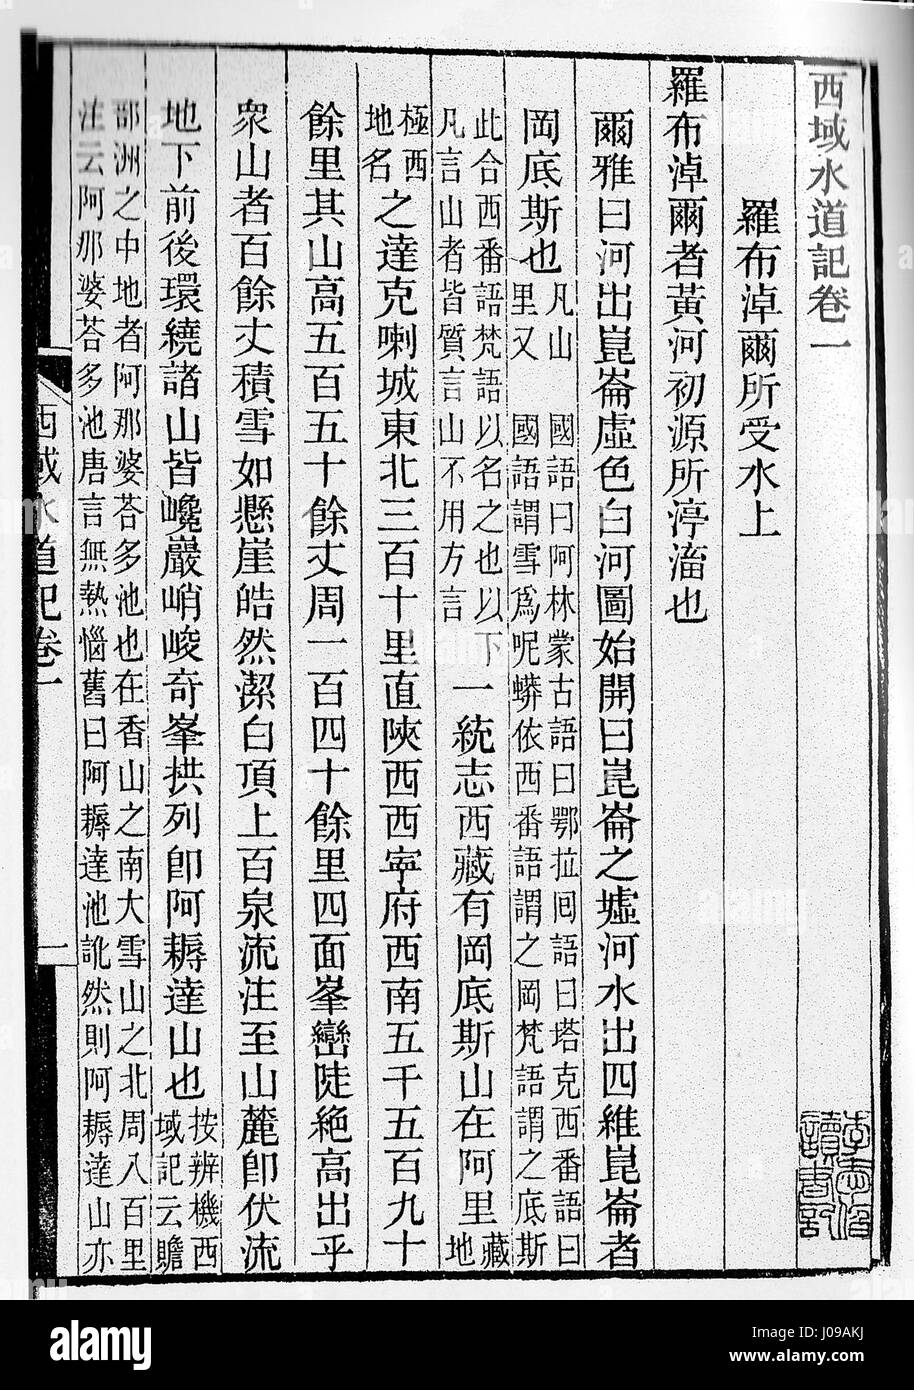 西域水道記卷一
羅布淖爾所受水上
羅布淖爾者黃河初源所渟滀也
爾雅曰河出崑崙虛色白河圖始開曰崑崙之墟河水出四維崑崙者
岡底斯也
凡山 國語曰阿林蒙古語曰鄂拉囘語曰塔克西番語曰
里又 國語謂雪爲呢蟒依西番語謂之岡梵語謂之底斯
此合西番語梵語以名之也以下
凡言山者皆質言山不用方言
一統志西藏有岡底斯山在阿里
藏
地
極西
地名
之達克喇城東北三百十里直陝西西寧府西南五千五百九十
餘里其山高五百五十餘丈周一百四十餘里四面峯巒陡絶高出乎
衆山者百餘丈積雪如懸崖皓然潔白頂上百泉流注至山麓卽伏流
地下前後環繞諸山皆巉巖峭峻奇峯拱列卽阿耨達山也
按辨機西
域記云贍
部洲之中地者阿那婆荅多池也在香山之南大雪山之北周八百里
注云阿那婆荅多池唐言無熱惱舊曰阿耨達池訛然則阿耨達山亦
西域水道記卷一
一
alamy
Image ID: J09AKJ
www.alamy.com